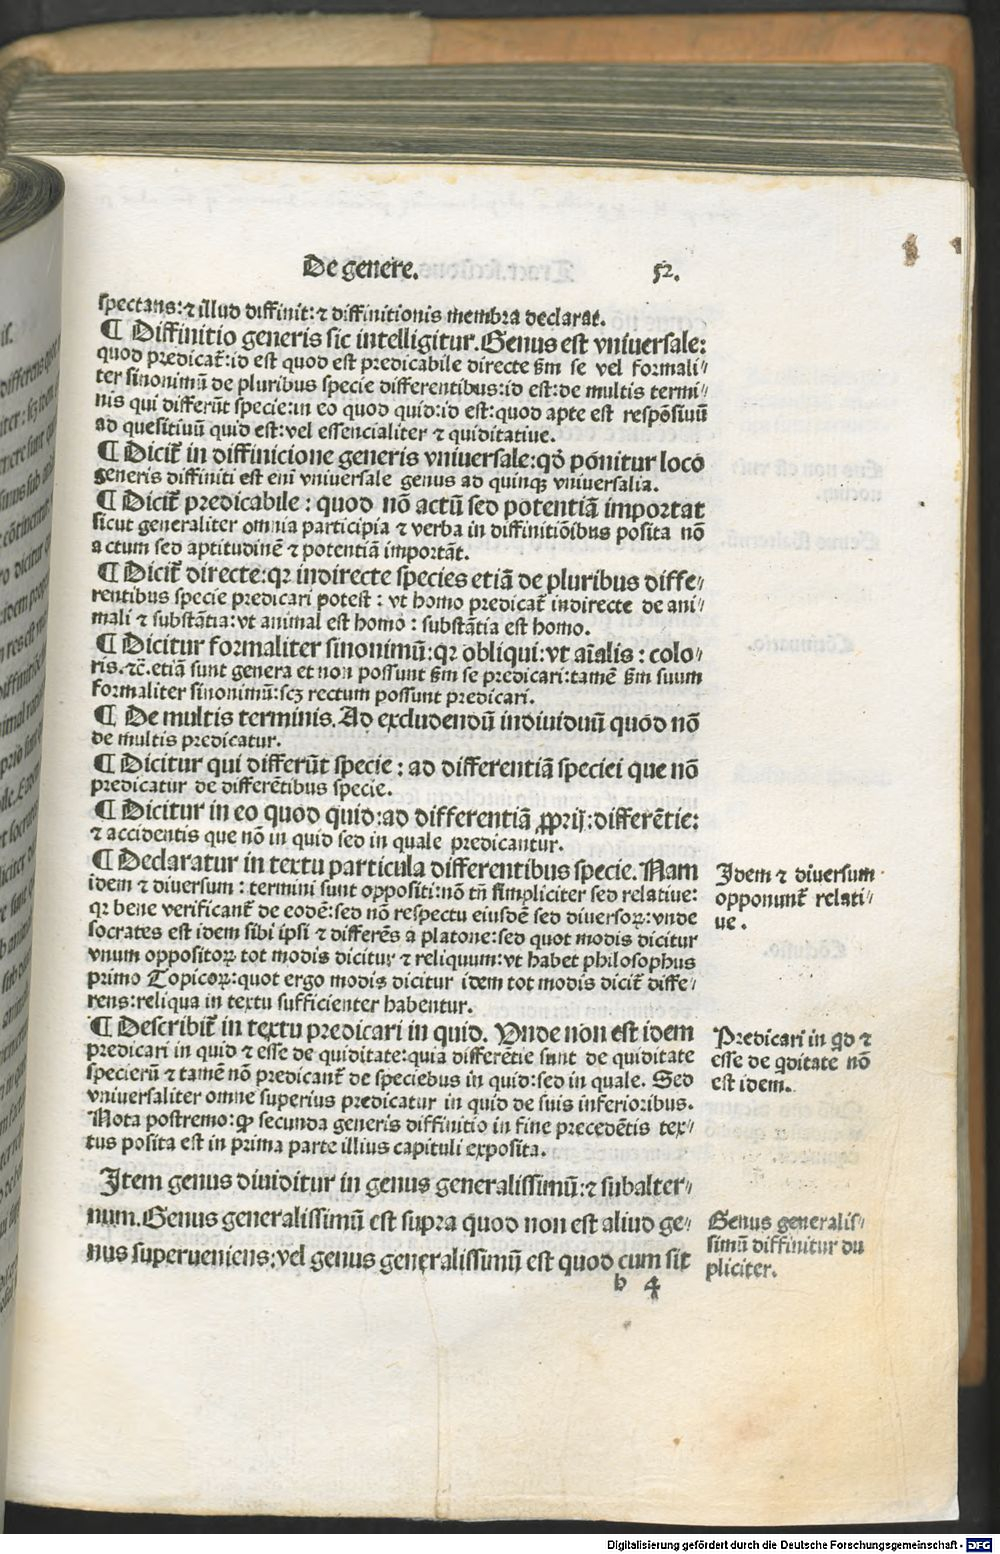 De genere. 52.
spectans:⁊ illud diffinit:⁊ diffinitionis membra declarat.
¶ Diffinitio generis sic intelligitur. Genus est vniuersale:
quod predicat̃:id est quod est predicabile directe s̃m se vel formali⸗
ter sinonimū de pluribus specie differentibus:id est:de multis termi⸗
nis qui differũt specie:in eo quod quid:id est:quod apte est respõsiuũ
ad quesitiuũ quid est:vel essencialiter ⁊ quiditatiue.
¶ Dicit̃ in diffinicione generis vniuersale:qõ ponitur loco
generis diffiniti est eni vniuersale genus ad quinqꝫ vniuersalia.
¶ Dicit̃ predicabile : quod nõ actũ sed potentiã importat
sicut generaliter omnia participia ⁊ verba in diffinitiõibus posita nõ
actum sed aptitudinẽ ⁊ potentiã importãt.
¶ Dicit̃ directe:qꝛ indirecte species etiã de pluribus diffe⸗
rentibus specie predicari potest : vt homo predicat̃ indirecte de ani⸗
mali ⁊ substãtia:vt animal est homo : substãtia est homo.
¶ Dicitur formaliter sinonimũ:qꝛ obliqui:vt aĩalis : colo⸗
ris.⁊c̃.etiã sunt genera et non possunt s̃m se predicari:tamẽ s̃m suum
formaliter sinonimũ:scꝫ rectum possunt predicari.
¶ De multis terminis. Ad excludendũ indiuiduũ quod nõ
de multis predicatur.
¶ Dicitur qui differũt specie : ad differentiã speciei que nõ
predicatur de differẽtibus specie.
¶ Dicitur in eo quod quid:ad differentiã ꝓprij:differẽtie:
⁊ accidentis que nõ in quid sed in quale predicantur.
¶ Declaratur in textu particula differentibus specie. Nam
idem ⁊ diuersum : termini sunt oppositi:nõ tñ simpliciter sed relatiue:
qꝛ bene verificant̃ de eodẽ:sed nõ respectu eiusdẽ sed diuersoꝝ:vnde
socrates est idem sibi ipsi ⁊ differẽs a platone:sed quot modis dicitur
vnum oppositoꝝ tot modis dicitur ⁊ reliquum:vt habet philosophus
primo Topicoꝝ:quot ergo modis dicitur idem tot modis dicit̃ diffe⸗
rens:reliqua in textu sufficienter habentur.
¶ Describit̃ in textu predicari in quid. Vnde non est idem
predicari in quid ⁊ esse de quiditate:quia differẽtie sunt de quiditate
specierũ ⁊ tamẽ nõ predicant̃ de speciebus in quid:sed in quale. Sed
vniuersaliter omne superius predicatur in quid de suis inferioribus.
Nota postremo:ꝙ secunda generis diffinitio in fine precedẽtis tex⸗
tus posita est in prima parte illius capituli exposita.
Item genus diuiditur in genus generalissimũ:⁊ subalter⸗
num. Genus generalissimũ est supra quod non est aliud ge⸗
nus superueniens:vel genus generalissimũ est quod cum sit
h 4
Idem ⁊ diuersum
opponunt̃ relati⸗
ue.
Predicari in qd ⁊
esse de qditate nõ
est idem.
Genus generalis⸗
simũ diffinitur du
pliciter.
Digitalisierung gefördert durch die Deutsche Forschungsgemeinschaft - DFG